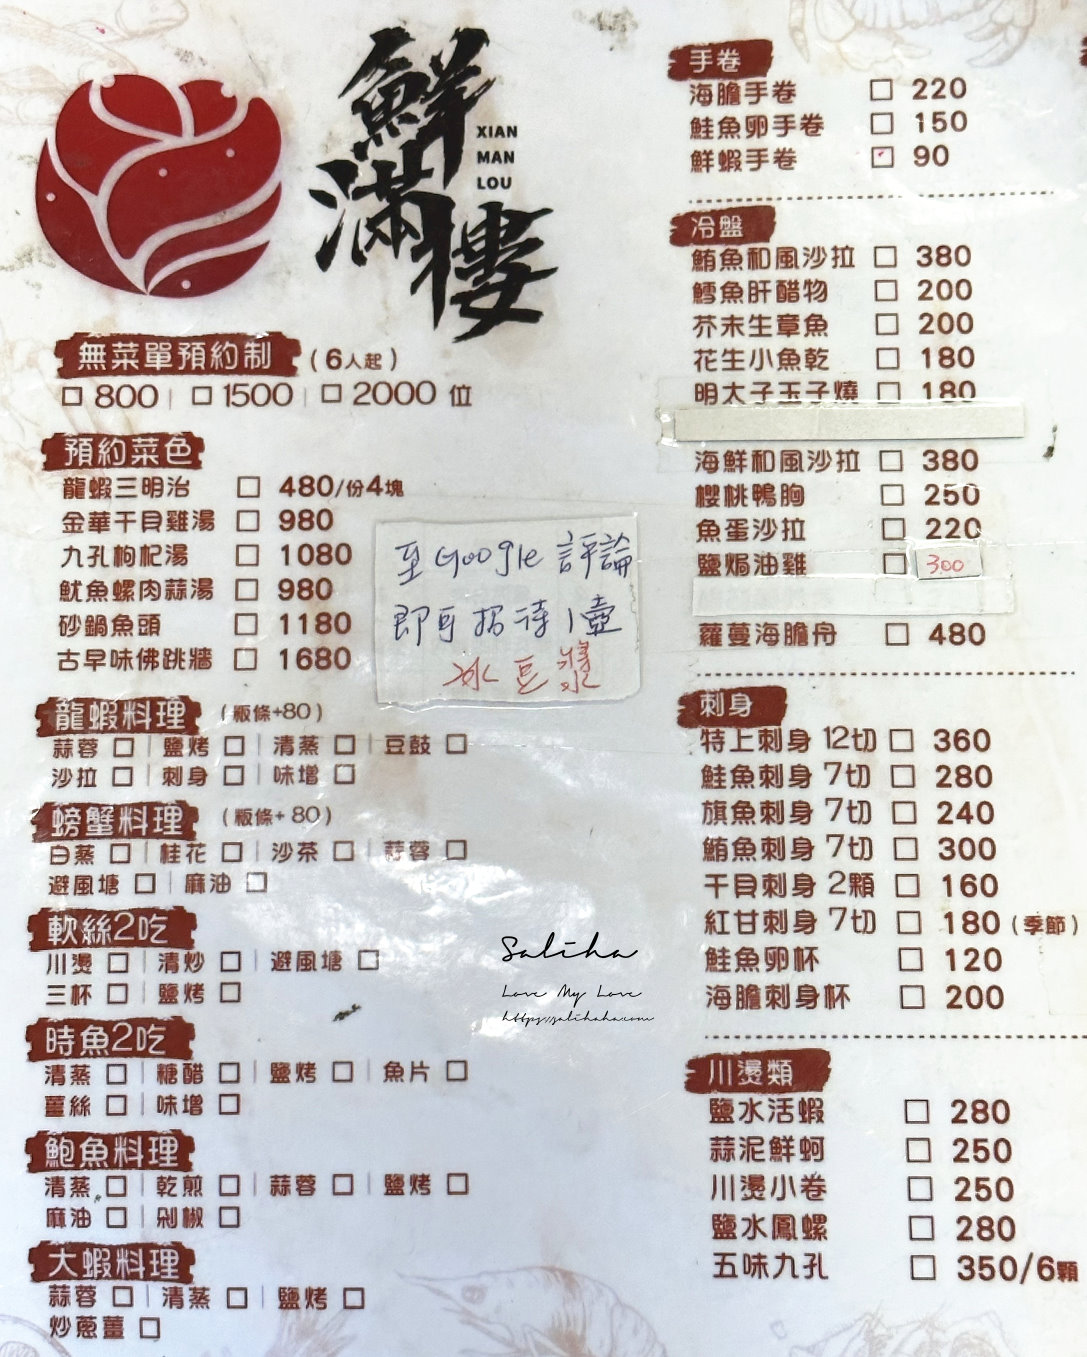 鮮滿樓
XIAN
MAN
LOU
無菜單預約制 (6人起)
□ 800 | □ 1500 | □ 2000 位
預約菜色
龍蝦三明治 □ 480/份4塊
金華干貝雞湯 □ 980
九孔枸杞湯 □ 1080
魷魚螺肉蒜湯 □ 980
砂鍋魚頭 □ 1180
古早味佛跳牆 □ 1680
至Google評論
即可招待1壺
冰豆漿
龍蝦料理 (粄條+80)
蒜蓉 □ | 鹽烤 □ | 清蒸 □ | 豆鼓 □
沙拉 □ | 刺身 □ | 味增 □
螃蟹料理 (粄條+80)
白蒸 □ | 桂花 □ | 沙茶 □ | 蒜蓉 □
避風塘 □ | 麻油 □
軟絲2吃
川燙 □ | 清炒 □ | 避風塘 □
三杯 □ | 鹽烤 □
時魚2吃
清蒸 □ | 糖醋 □ | 鹽烤 □ | 魚片 □
薑絲 □ | 味增 □
鮑魚料理
清蒸 □ | 乾煎 □ | 蒜蓉 □ | 鹽烤 □
麻油 □ | 剁椒 □
大蝦料理
蒜蓉 □ | 清蒸 □ | 鹽烤 □
炒蔥薑 □
手卷
海膽手卷 □ 220
鮭魚卵手卷 □ 150
鮮蝦手卷 □ 90
冷盤
鮪魚和風沙拉 □ 380
鱈魚肝醋物 □ 200
芥末生章魚 □ 200
花生小魚乾 □ 180
明太子玉子燒 □ 180
海鮮和風沙拉 □ 380
櫻桃鴨胸 □ 250
魚蛋沙拉 □ 220
鹽焗油雞 □ 300
蘿蔓海膽舟 □ 480
刺身
特上刺身 12切 □ 360
鮭魚刺身 7切 □ 280
旗魚刺身 7切 □ 240
鮪魚刺身 7切 □ 300
干貝刺身 2顆 □ 160
紅甘刺身 7切 □ 180 (季節)
鮭魚卵杯 □ 120
海膽刺身杯 □ 200
川燙類
鹽水活蝦 □ 280
蒜泥鮮蚵 □ 250
川燙小卷 □ 250
鹽水鳳螺 □ 280
五味九孔 □ 350/6顆
Saliha
Love My Love
https://salihaha.com